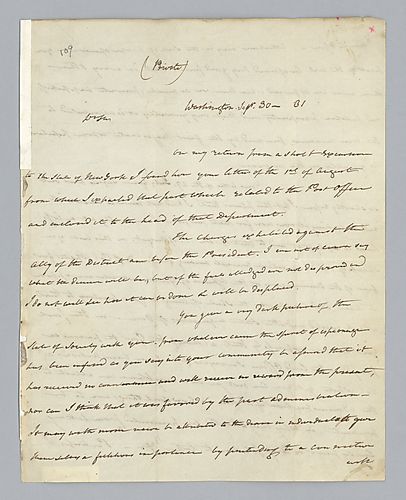 109
(Private)
Washington Sept. 30 — 31
D Sir
On my return from a short excursion
to the State of New York I found here your letter of the 1st of August
from which I extracted that part which related to the Post Office
and inclosed it to the head of that Department.
The Charges exhibited against the
Atty of the District are before the President. I can not of course say
what the decision will be, but if the facts alledged are not disproved
I do not well see how it can be done he will be displaced.
You give a very dark picture of the
State of Society with you; from whatever came the spirit of espionage
has been infused as you say into your community be assured that it
has received no countenance and will receive no reward from the present,
nor can I think that it was favored by the past administration —
It may with more reason be attributed to the desire in individuals to give
themselves a fictitious importance by pretending to a connection
with